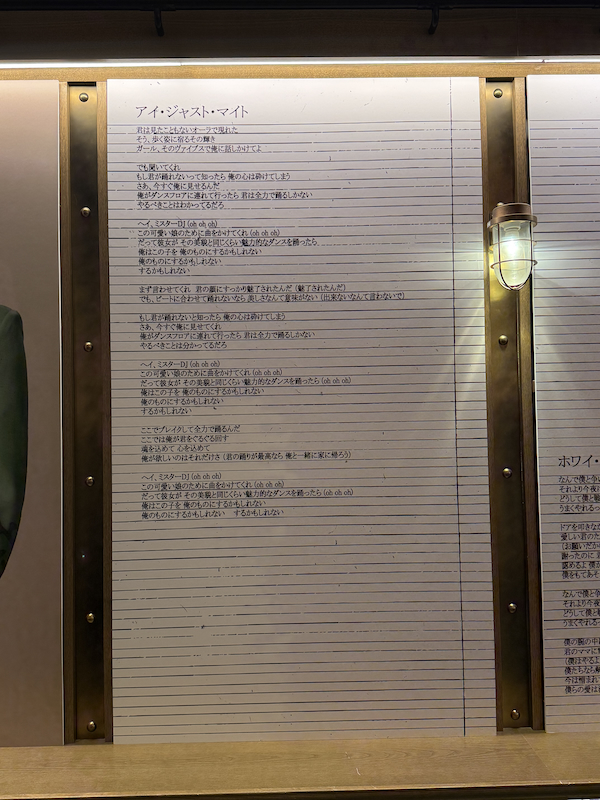 アイ・ジャスト・マイト
君は見たこともないオーラで現れた
そう、歩く姿に宿るその輝き
ガール、そのヴァイブスで俺に話しかけてよ
でも聞いてくれ
もし君が踊れないって知ったら 俺の心は砕けてしまう
さあ、今すぐ俺に見せるんだ
俺がダンスフロアに連れて行ったら 君は全力で踊るしかない
やるべきことはわかってるだろ
ヘイ、ミスターDJ (oh oh oh)
この可愛い娘のために曲をかけてくれ (oh oh oh)
だって彼女が その美貌と同じくらい魅力的なダンスを踊ったら
俺はこの子を 俺のものにするかもしれない
俺のものにするかもしれない
するかもしれない
まず言わせてくれ 君の顔にすっかり魅了されたんだ (魅了されたんだ)
でも、ビートに合わせて踊れないなら 美しさなんて意味がない (出来ないなんて言わないで)
もし君が踊れないと知ったら 俺の心は砕けてしまう
さあ、今すぐ俺に見せてくれ
俺がダンスフロアに連れて行ったら 君は全力で踊るしかない
やるべきことは分かってるだろ
ヘイ、ミスターDJ (oh oh oh)
この可愛い娘のために曲をかけてくれ (oh oh oh)
だって彼女が その美貌と同じくらい魅力的なダンスを踊ったら (oh oh oh)
俺はこの子を 俺のものにするかもしれない
俺のものにするかもしれない
するかもしれない
ここでブレイクして全力で踊るんだ
ここでは俺が君をぐるぐる回す
魂を込めて 心を込めて
俺が欲しいのはそれだけさ (君の踊りが最高なら 俺と一緒に家に帰ろう)
ヘイ、ミスターDJ (oh oh oh)
この可愛い娘のために曲をかけてくれ (oh oh oh)
だって彼女が その美貌と同じくらい魅力的なダンスを踊ったら (oh oh oh)
俺はこの子を 俺のものにするかもしれない
俺のものにするかもしれない するかもしれない
ホワイ・
なんで僕と
それより今夜
どうして僕と
うまくやれる
ドアを叩きなが
愛しい君の
(お願いだか
謝ったのに
認めるよ 僕が
僕をもてあそ
なんで僕と
それより今夜
どうして僕と
うまくやれる
僕の腕の中に
君のママに
(僕はやるよ
僕たちなら
今は
僕らの愛は